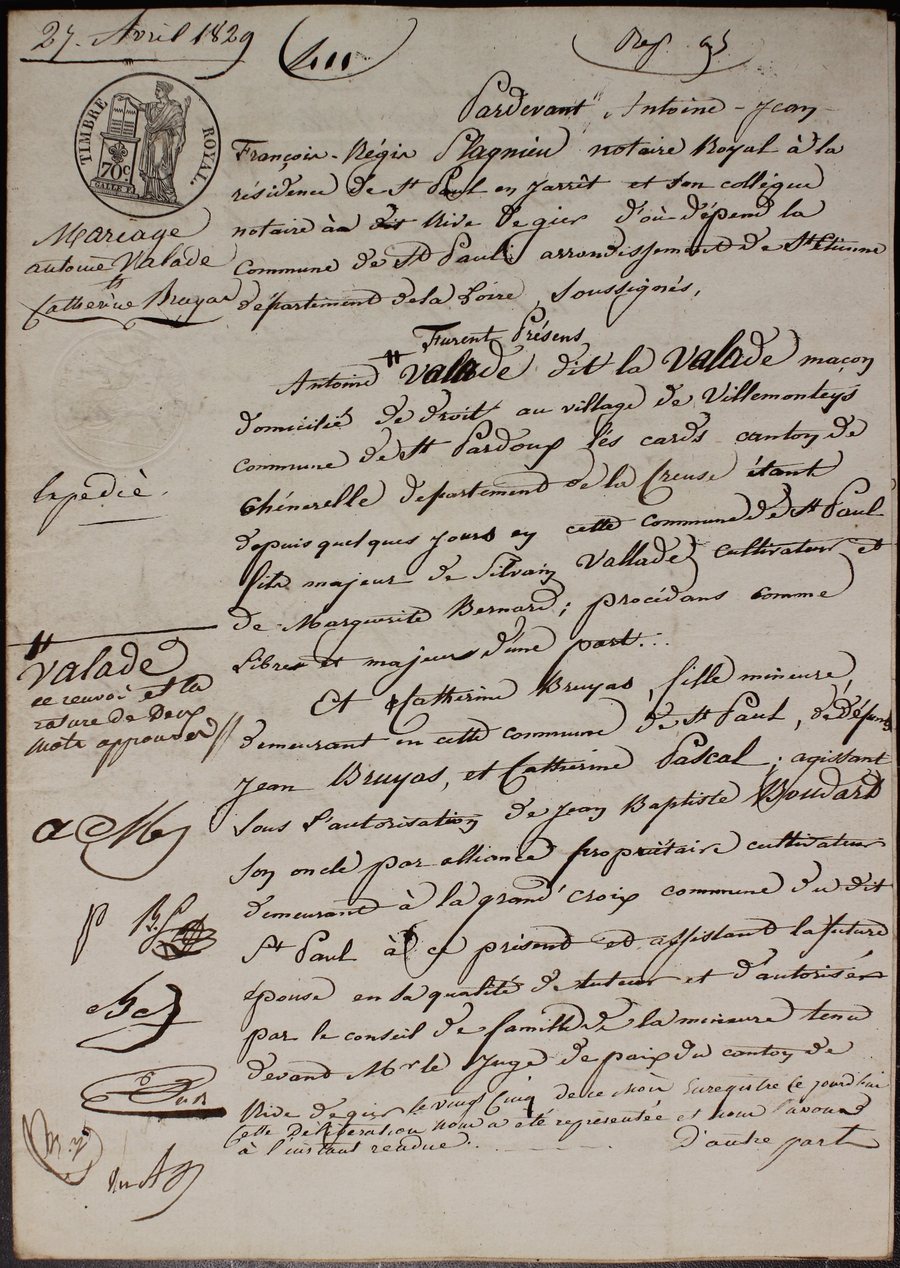 27. Avril 1829
TIMBRE ROYAL.
70c
Pardevant Antoine-Jean-
François-Régis Plagnieu notaire Royal à la
résidence de St Paul en jarrêt et son collégue
notaire à Rive de gier d'où dépend la
Commune de St Paul; arrondissement de St Etienne
département de la Loire, Soussignés,
Mariage
antoine Valade
&
Catherine Bruyas
Furent Présens
Antoine Valade dit la Valade maçon
domicilié de droit au village de Villemonteys
commune de St Pardoux lés cards canton de
Chénerelle département de la Creuse étant
depuis quelques jours en cette commune de St Paul
fils majeur de Silvain Vallade cultivateur et
de Marguerite Bernard; procédans comme
libres et majeurs d'une part...
Expedié.
Et Catherine Bruyas, fille mineure,
demeurant en cette commune de St Paul, de défunts
Jean Bruyas, et Catherine Pascal; agissant
sous l'autorisation de Jean Baptiste Boudard
son oncle par alliance propriétaire cultivateur
demeurant à la grand'croix commune du dit
St Paul à ce présent et assistant la future
épouse en sa qualité de tuteur et d'autorisé
par le conseil de famille de la mineure tenu
devant Mr le Juge de paix du canton de
Rive de gier le vingt cinq de ce mois Enregistré ce jourd'hui
Cette Délibération nous a été représentée et nous l'avons
à l'instant rendue.
D'autre part
Valade
ce renvoi et la
rature de deux
mots approuvés